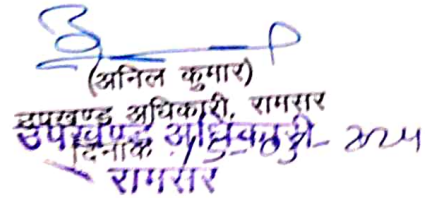 (अनिल कुमार)
उपखण्ड अधिकारी, रामसर
उपखण्ड अधिकारी
दिनांक
रामसर